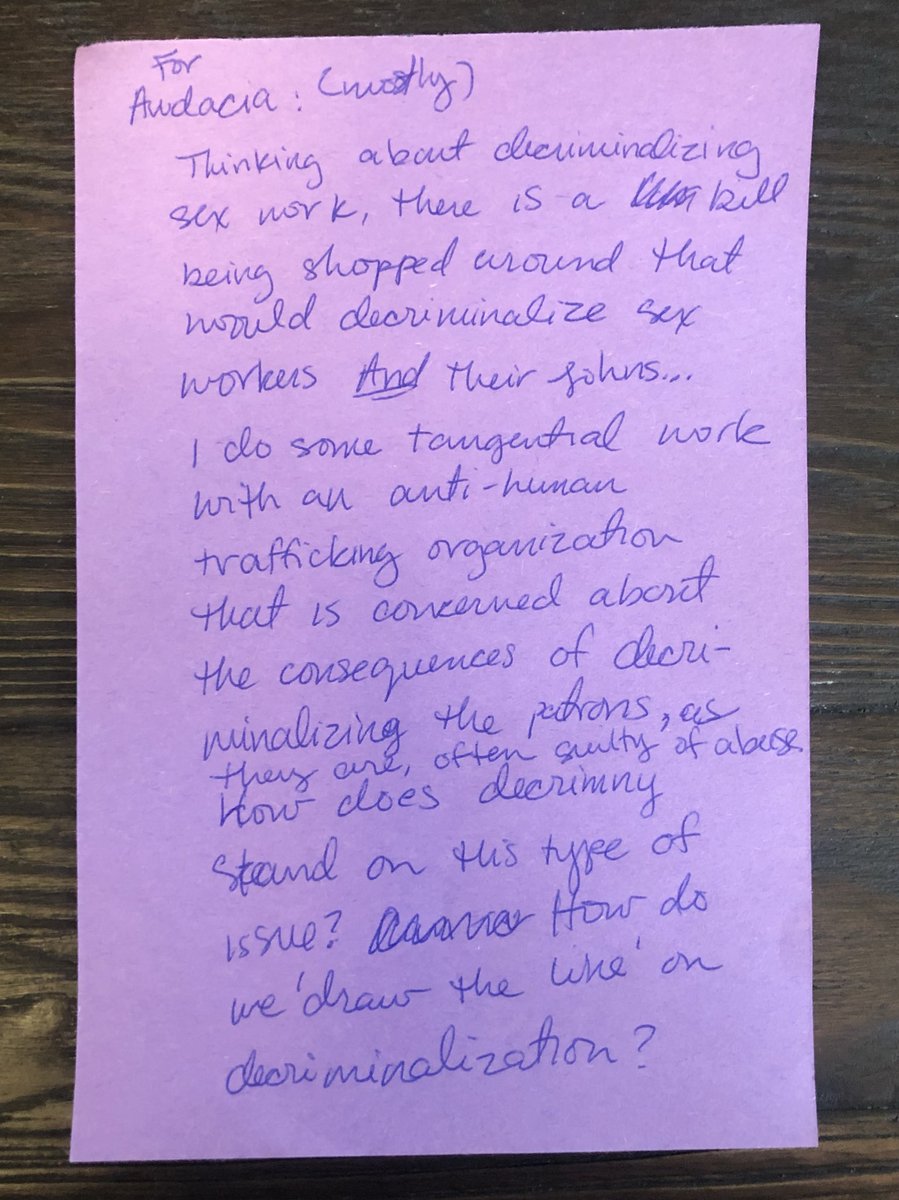 For
Audacia: (mostly)
Thinking about decriminalizing
sex work, there is a bill
being shopped around that
would decriminalize sex
workers And their johns...
I do some tangential work
with an anti-human
trafficking organization
that is concerned about
the consequences of decri-
minalizing the patrons, as
they are, often guilty of abuse.
How does decrimny
stand on this type of
issue? How do
we 'draw the line' on
decriminalization?